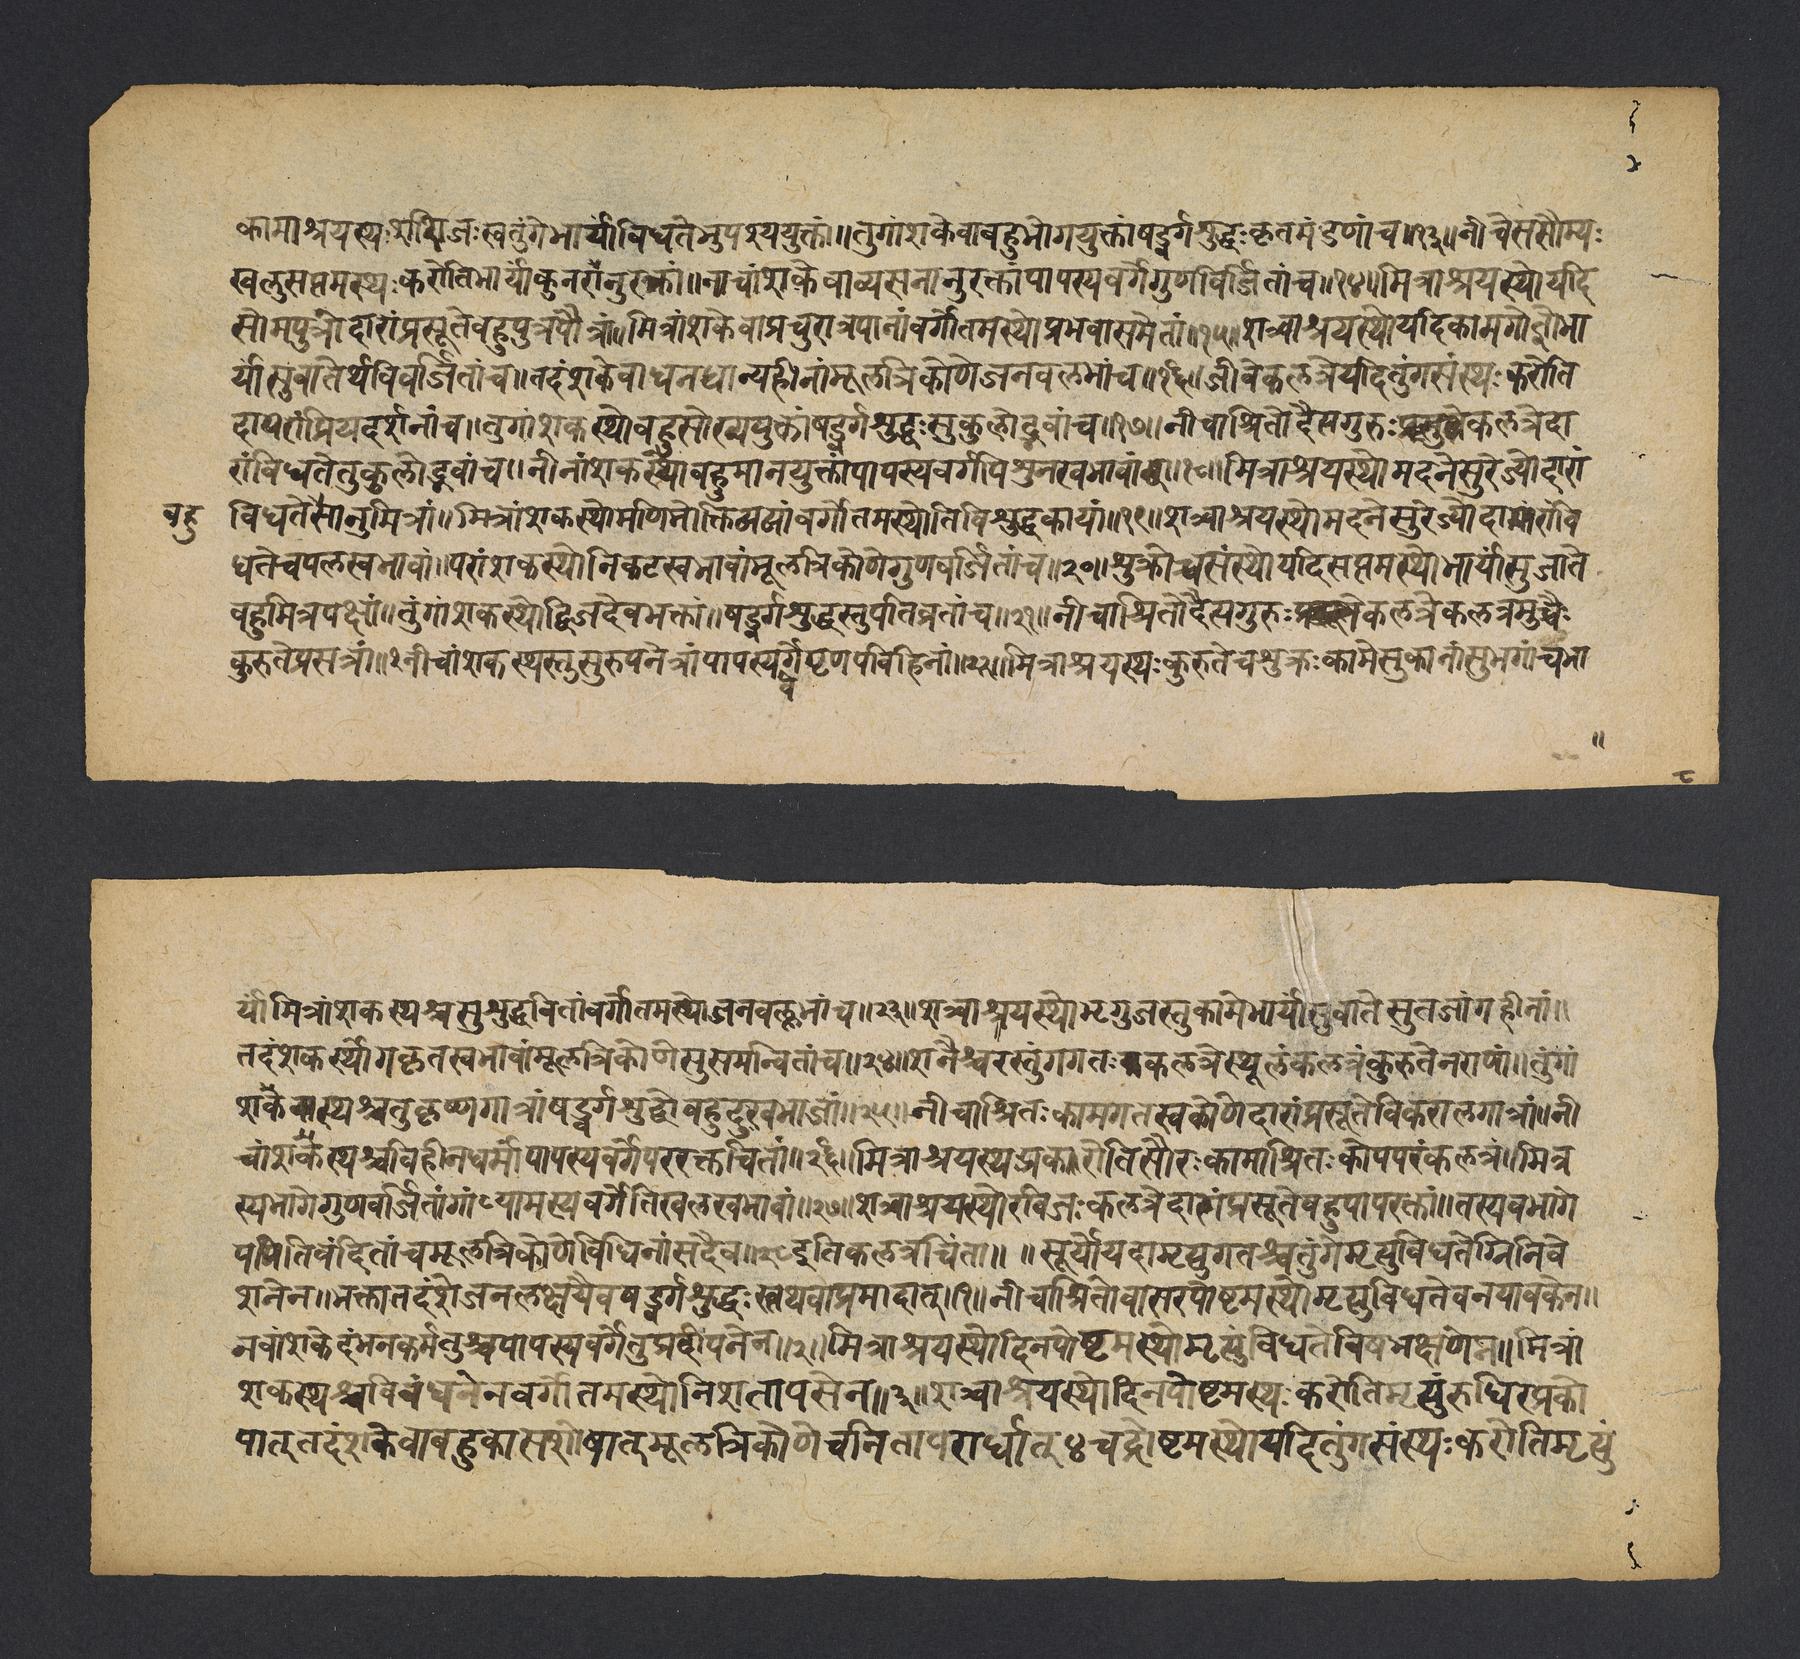 कामाश्रयस्थःशशिजःस्वतुंगेभार्यांविधत्तेभुपश्ययुक्तां॥तुगांशकेवाबहुभोगयुक्तांषड्वर्गशुद्धःकृतमंडणांच॥१३॥नीचेससौम्यः
खलुसप्तमस्थःकरोतिभार्यांकुनरानुरक्तां॥नाचांशकेवाव्यसनानुरक्तांपापस्यवर्गेगुणविर्जितांच॥१४॥मित्राश्रयस्थोयदि
सोमपुत्रोदारांप्रसूतेबहुपुत्रपौत्रां॥मित्रांशकेवाप्रचुरान्नपानांवर्गोतमस्थोप्रभवासमेतां॥१५॥शत्र्वाश्रयस्थोयदिकामगोज्ञोभा
र्यांसुवातेर्थविवर्जितांच॥तदंशकेवाधनधान्यहीनांमूलत्रिकोणेजनवलभांच॥१६॥जीवेकलत्रेयदितुंगसंस्थःकरोति
दारांप्रियदर्शनांच॥तुगांशकस्थोबहुसौख्ययुक्तांषड्वर्गशुद्धःसुकुलोद्भवांच॥१७॥नीचाश्रितोदैसगुरुःकलत्रेदा
रांविधत्तेतुकुलोद्भवांच॥नीनांशकस्थोबहुमानयुक्तांपापस्यवर्गेपिशुनस्वभावां॥१८॥मित्राश्रयस्थोमदनेसुरेज्योदारां
बहु विधतेसौनुमित्रां॥मित्रांशकस्थोमणिमोक्तिकाढ्यांवर्गोतमस्थोतिविशुद्धकायां॥१९॥शत्र्वाश्रयस्थोमदनेसुरेज्योदारांवि
धतेचपलस्वभावां॥परांशकस्थोनिकटस्वभावांमूलत्रिकोणेगुणवर्जितांच॥२०॥शुक्रोच्चसंस्थोयदिसप्तमस्थोभार्यांसुजाते
बहुमित्रपक्षां॥तुंगांशकस्थोद्विजदेवभक्तां॥षड्वर्गशुद्धस्तुपतिव्रतांच॥२१॥नीचाश्रितोदैसगुरुःकलत्रेकलत्रमुच्चैः
कुरुतेप्रसन्नां॥नीचांशकस्थस्तुसुरुपनेत्रांपापस्यवर्गेपृणपविहिनां॥२२॥मित्राश्रयस्थःकुरुतेचशुक्रःकामेसुकानांसुभगांचभा
र्यांमित्रांशकस्थश्चसुशुद्धवितांवर्गोतमस्थोजनवल्लभांच॥२३॥शत्र्वाश्रयस्थोभृगुजस्तुकामेभार्यांसुवातेसुतजांगहीनां॥
तदंशकस्थोगकृतस्वभावांमूलत्रिकोणेसुसमन्वितांच॥२४॥शनैश्चरस्तुंगगतःकलत्रेस्थूलंकलत्रंकुरुतेनराणां॥तुंगां
शकेस्थश्चतुकृष्णगात्रांषड्वर्गशुद्धोबहुदुखभाजां॥२५॥नीचाश्रितःकामगतस्वकोणेदारांप्रसूतेविकरालगात्रां॥नी
चांशकेस्थश्चविहीनधर्मांपापस्यवर्गेपररक्तचितां॥२६॥मित्राश्रयस्थप्रकरोतिसौरःकामाश्रितःकोपपरंकलत्रं॥मित्र
स्यभागेगुणवर्जितांगांप्यामस्यवर्गेतिखलस्वभावां॥२७॥शत्र्वाश्रयस्थोरविजःकलत्रेदारांप्रसूतेबहुपापरक्तां॥तस्यवभागे
पपितिवंदितांचमूलत्रिकोणेविधिनांसदैव॥२८इतिकलत्रचिंता॥ ॥सूर्योयदामृत्युगतश्चतुंगेमृत्युंविधतेग्निनिवे
शनेन॥भक्तातदंशेजनलक्षयेवषड्वर्गशुद्धःत्वथवाप्रमादात्॥१॥नीचाश्रितोवासरपोष्टमस्थोमृत्युंविधतेवनयावकेन॥
नवांशकेदंभनकर्मतुश्चपापस्यवर्गेतुप्रदीपनेन॥२॥मित्राश्रयस्थोदिनपोष्टमस्थोमृत्युंविधतेविषभक्षणेन॥मित्रां
शकस्थश्चविबंधनेनवर्गोतमस्थोनिशतापसेन॥३॥शत्र्वाश्रयस्थोदिनपोष्टमस्थःकरोतिमृत्युंरुधिरप्रको
पात्तदंशकेवाबहुकासशोषात्मूलत्रिकोणेचनितापरार्धात्४चद्रोष्टमस्थोयदितुंगसंस्थःकरोतिमृत्युं